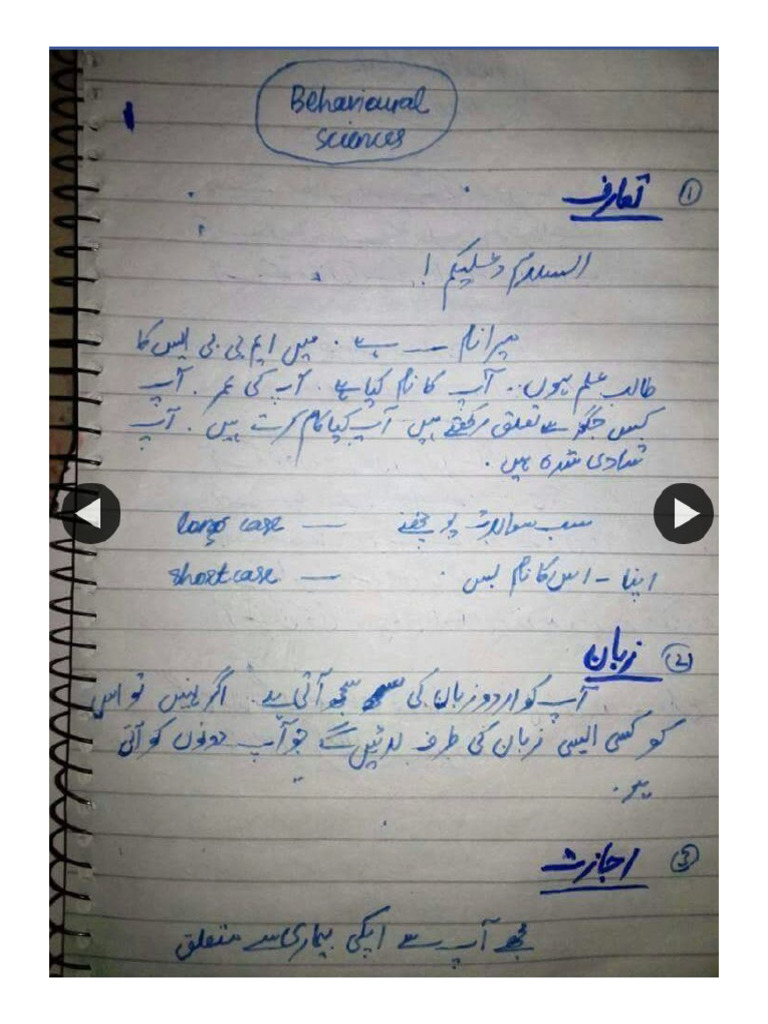 Behavioural
sciences
① تعارف
السلام وعلیکم !
میرا نام ــــ ہے ۔ میں ایم بی بی ایس کا
طالب علم ہوں ۔ آپ کا نام کیا ہے ۔ آپ کی عمر ۔ آپ
کس جگہ سے تعلق رکھتے ہیں آپ کیا کام کرتے ہیں ۔ آپ
شادی شدہ ہیں ۔
سب سوالات پوچھنے — long case
اپنا - اس کا نام بس — short case
② زبان
آپ کو اردو زبان کی سمجھ آتی ہے ۔ اگر نہیں تو اس
کو کسی ایسی زبان کی طرف لائیں گے جو آپ دونوں کو آتی
ہو ۔
③ اجازت
مجھے آپ سے آپکی بیماری سے متعلق